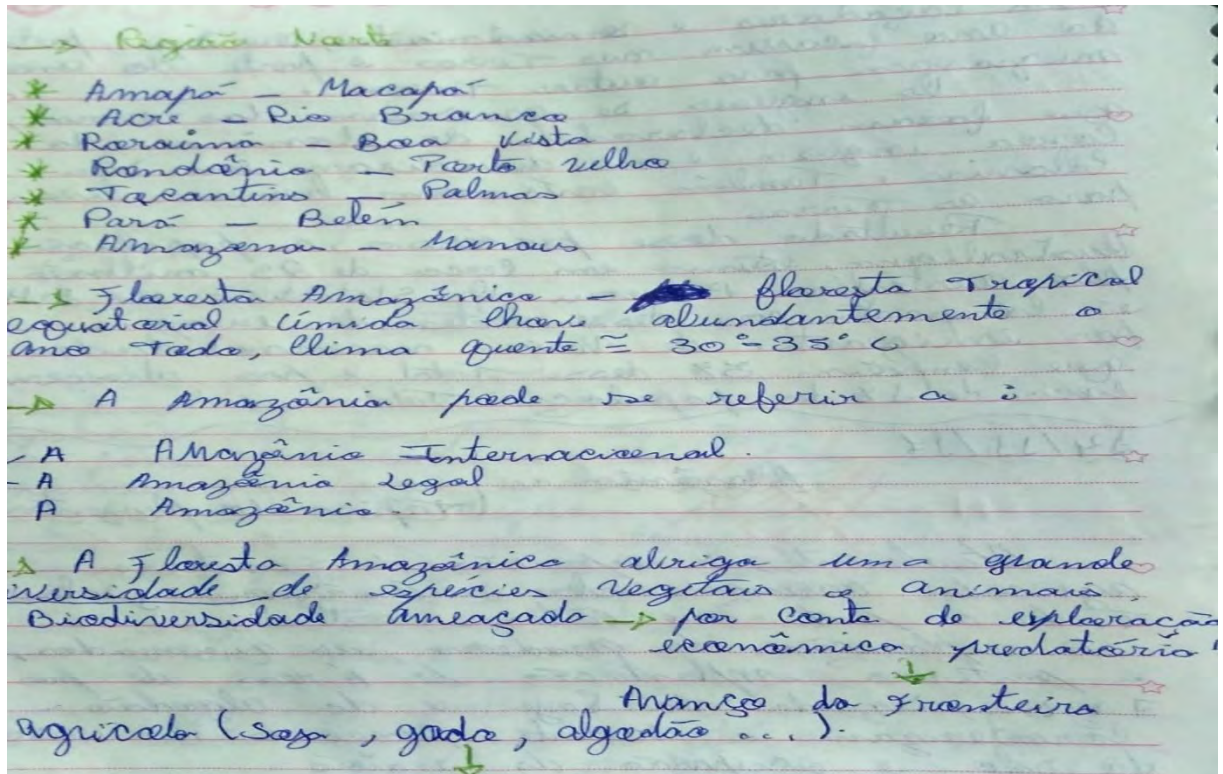 → Região Norte
* Amapá - Macapá
* Acre - Rio Branco
* Roraima - Boa Vista
* Rondônia - Porto velho
* Tocantins - Palmas
* Pará - Belém
* Amazonas - Manaus
→ Floresta Amazônica - floresta Tropical
equatorial úmida chove abundantemente o
ano Todo, Clima quente ≅ 30°-35° C
→ A Amazônia pode se referir a :
- A Amazônia Internacional.
- A Amazônia Legal
A Amazônia.
→ A Floresta Amazônica abriga uma grande
iversidade de espécies Vegetais e animais.
Biodiversidade Ameaçada → por conta de exploração
econômica predatória"
↓
Avanço da Fronteira
agricola (Soja, gado, algodão ...).
↓